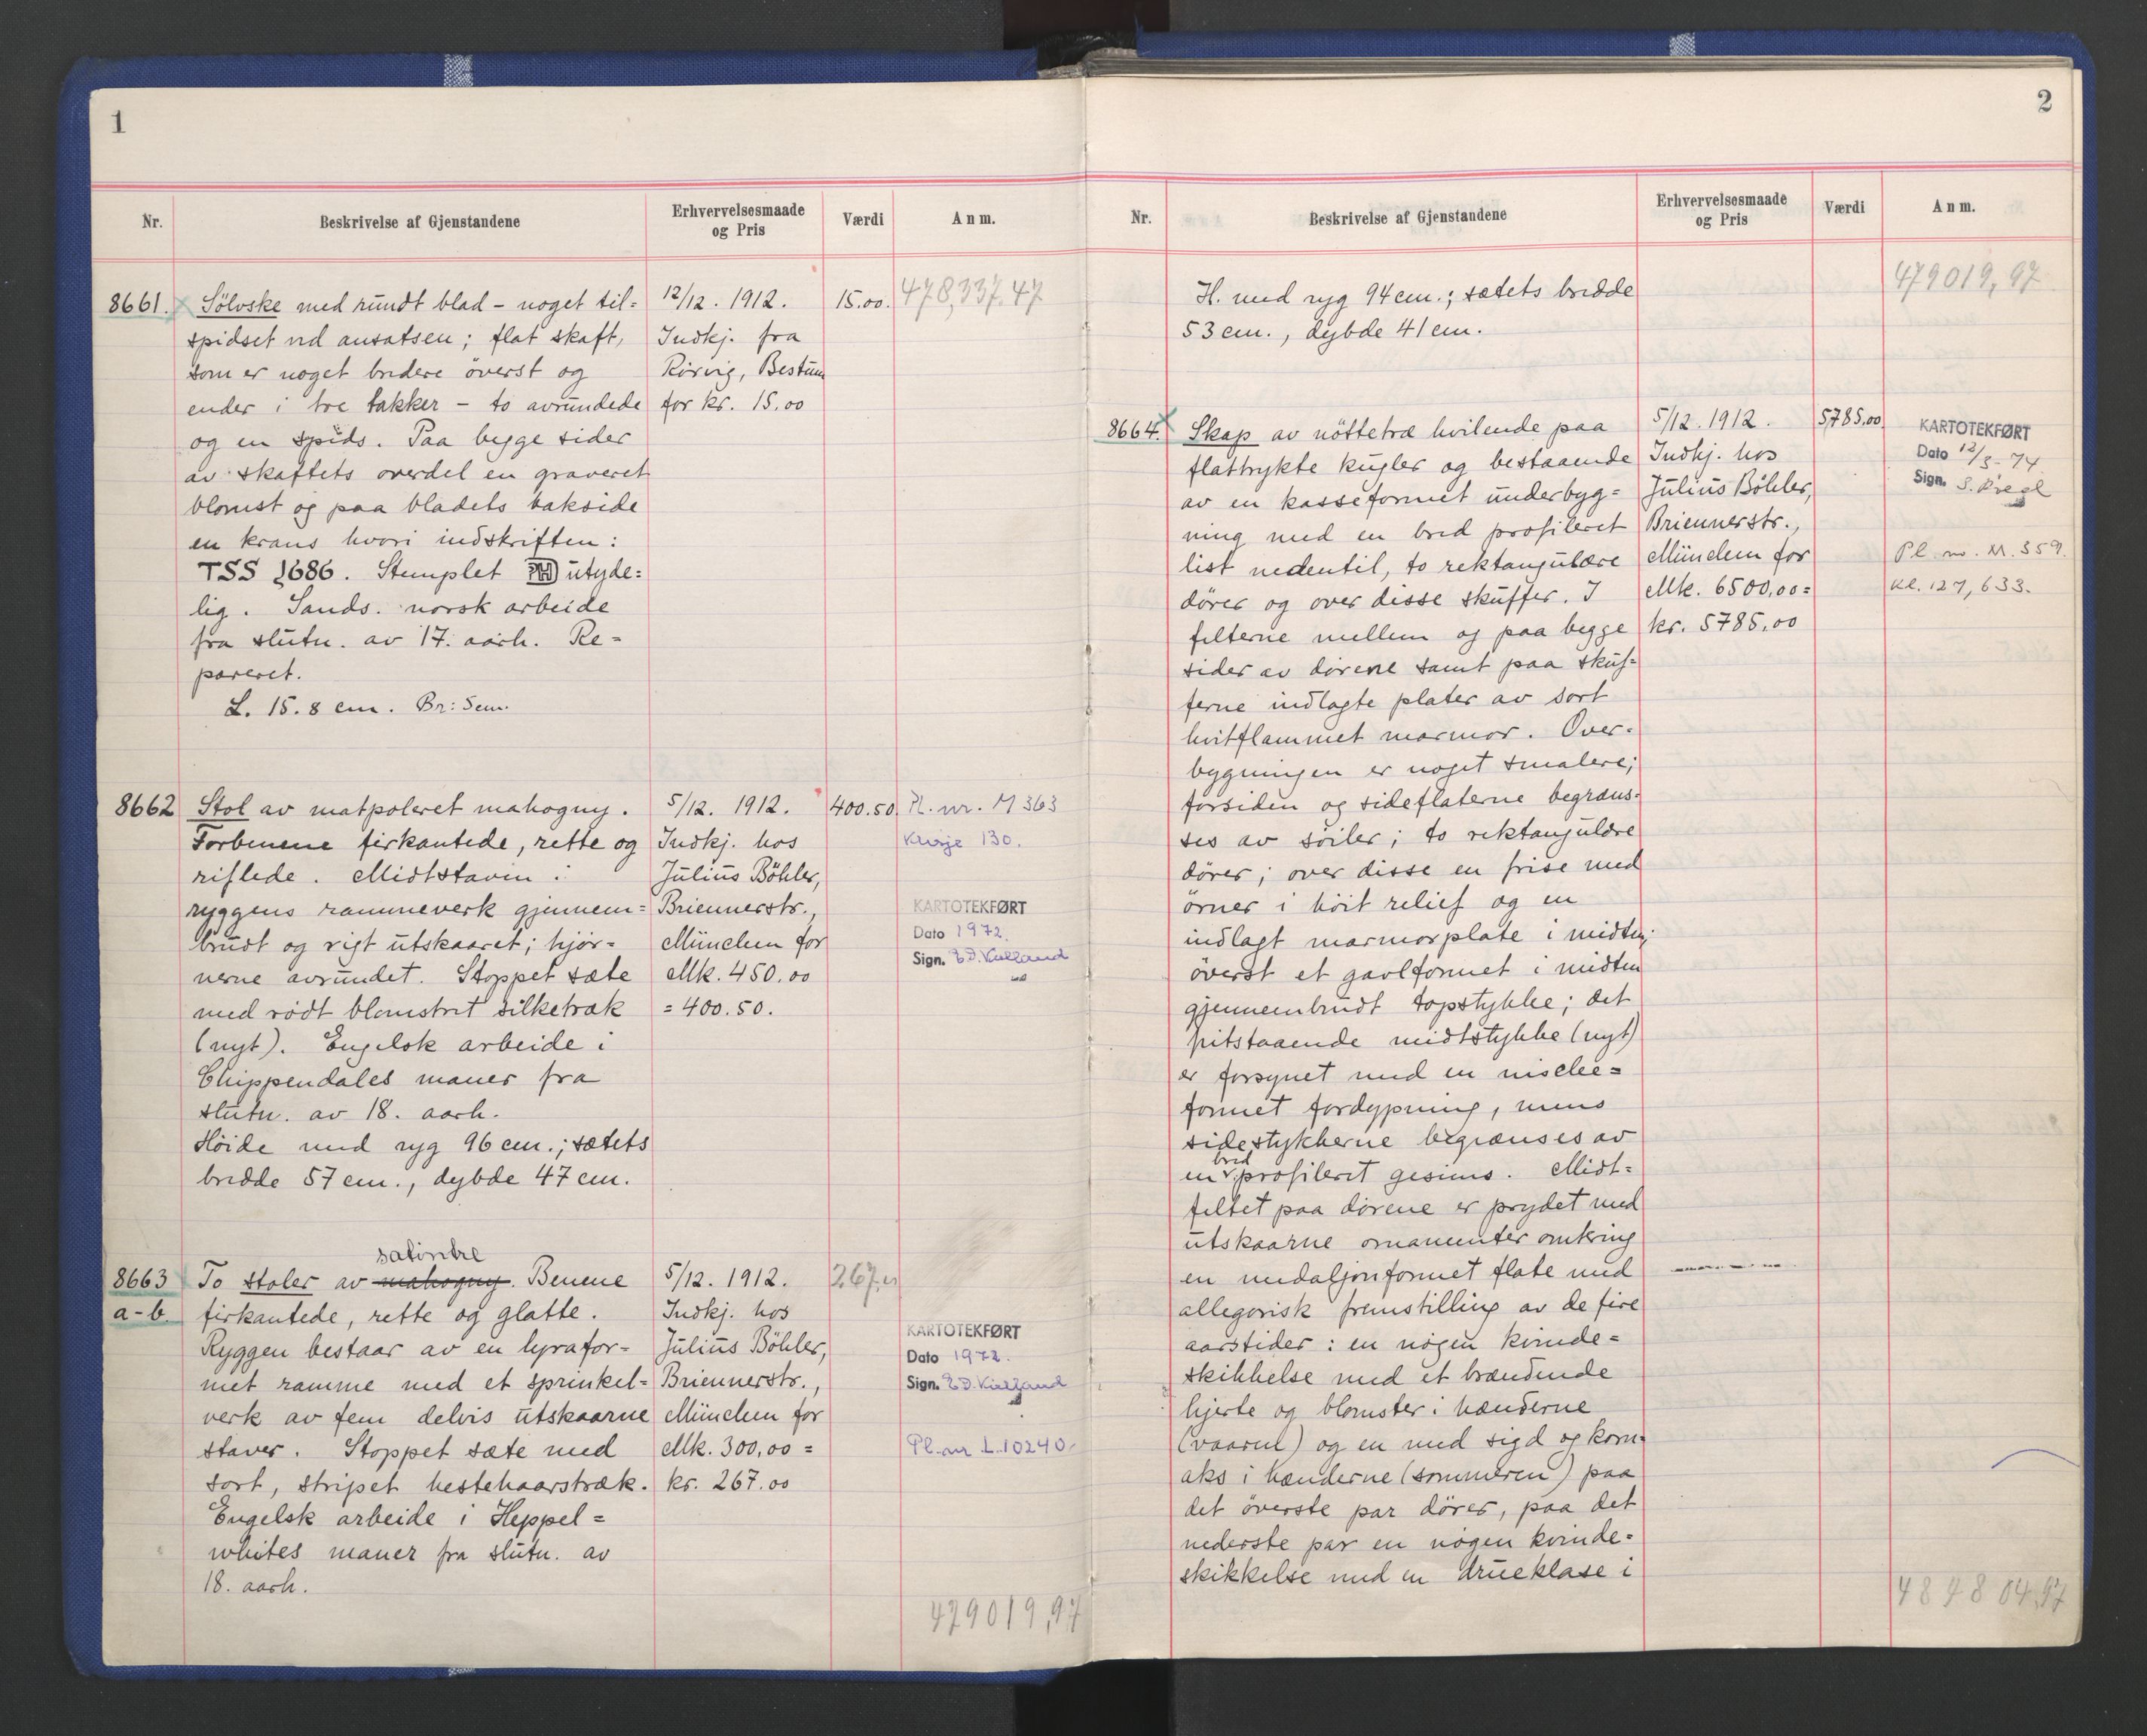 1
Nr.
Beskrivelse af Gjenstandene
Erhvervelsesmaade
og Pris
Værdi
Anm.
8661.
Sölvske med rundt blad - noget til=
spidset ved ansatsen; flat skaft,
som er noget bredere överst og
ender i tre takker - to avrundede
og en spids. Paa begge sider
av skaftets overdel en graveret
blomst og paa bladets bakside
en krans hvori indskriften:
TSS 1686. Stemplet utyde=
lig. Sands. norsk arbeide
fra slutn. av 17. aarh. Re=
pareret.
L. 15.8 cm. Br: 5cm.
12/12. 1912.
Indkj. fra
Rörvig, Bestum
for kr. 15.00
15.00.
478,337.47
8662
Stol av matpoleret mahogny.
Forbenene firkantede, rette og
riflede. Midtstaven i
ryggens rammeverk gjennem=
brudt og rigt utskaaret; hjör=
nerne avrundet. Stoppet sæte
med rödt blomstret silketræk
(nyt). Engelsk arbeide i
Chippendales maner fra
slutn. av 18. aarh.
Höide med ryg 96 cm.; sætets
bredde 57 cm., dybde 47 cm.
5/12. 1912.
Indkj. hos
Julius Böhler,
Briennerstr.,
München for
Mk. 450.00
= 400.50.
400.50.
Pl. nr. M 363
130.
KARTOTEKFØRT
Dato 1972.
Sign. E.D. Kielland
8663
a-b.
satintre
To stoler av mahogny. Benene
firkantede, rette og glatte.
Ryggen bestaar av en lyrafor=
met ramme med et sprinkel=
verk av fem delvis utskaarne
staver. Stoppet sæte med
sort, stripet hestehaarstræk.
Engelsk arbeide i Heppel=
whites maner fra slutn. av
18. aarh.
5/12. 1912.
Indkj. hos
Julius Böhler,
Briennerstr.,
München for
Mk. 300,00 =
kr. 267.00
267.00
KARTOTEKFØRT
Dato 1972.
Sign. E.D. Kielland
Pl. nr L.10240.
479019,97
2
Nr.
Beskrivelse af Gjenstandene
Erhvervelsesmaade
og Pris
Værdi
Anm.
479019,97
H. med ryg 94 cm.; sætets bredde
53 cm., dybde 41 cm.
8664.
Skap av nöttetræ hvilende paa
flattrykte kugler og bestaaende
av en kasseformet underbyg=
ning med en bred profileret
list nedentil, to rektangulære
dörer og over disse skuffer. I
felterne mellem og paa begge
sider av dörene samt paa skuf=
ferne indlagte plater av sort
hvitflammet marmor. Over=
bygningen er noget smalere;
forsiden og sideflaterne begræns=
ses av söiler; to rektangulære
dörer; over disse en frise med
örner i höit relief og en
indlagt marmorplate i midten;
överst et gavlformet i midten
gjennembrudt topstykke; det
fritstaaende midtstykke (nyt)
er forsynet med en nische=
formet fordypning, mens
sidestykkerne begrænses av
bred
en profileret gesims. Midt=
feltet paa dörene er prydet med
utskaarne ornamenter omkring
en medaljonformet flate med
allegorisk fremstilling av de fire
aarstider: en nögen kvinde=
skikkelse med et brændende
hjerte og blomster i hænderne
(vaaren) og en med sigd og korn=
aks i hænderne (sommeren) paa
det överste par dörer, paa det
nederste par en nögen kvinde=
skikkelse med en drueklase i
5/12. 1912.
Indkj. hos
Julius Böhler,
Briennerstr.,
München for
Mk. 6500,00 =
kr. 5785,00
5,785,00
KARTOTEKFØRT
Dato 12/3-74
Sign. S.
Pl. nr. M.359.
Kl. 127, 633.
484804,97